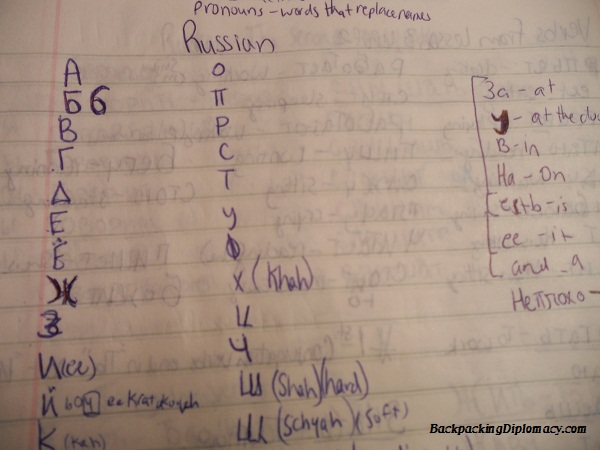 pronouns - words that replace names
Russian
А
Б б
В
Г
Д
Е
Ё
Ж
З
И (ee)
Й
К (kah)
О
П
Р
С
Т
У
Ф
Х (Khah)
Ц
Ч
Ш (Shah) (hard)
Щ (Schyah) (soft)
За - at
У - at the
В - in
На - On
есть - is
ее - it
and - a
Неплохо -
BackpackingDiplomacy.com